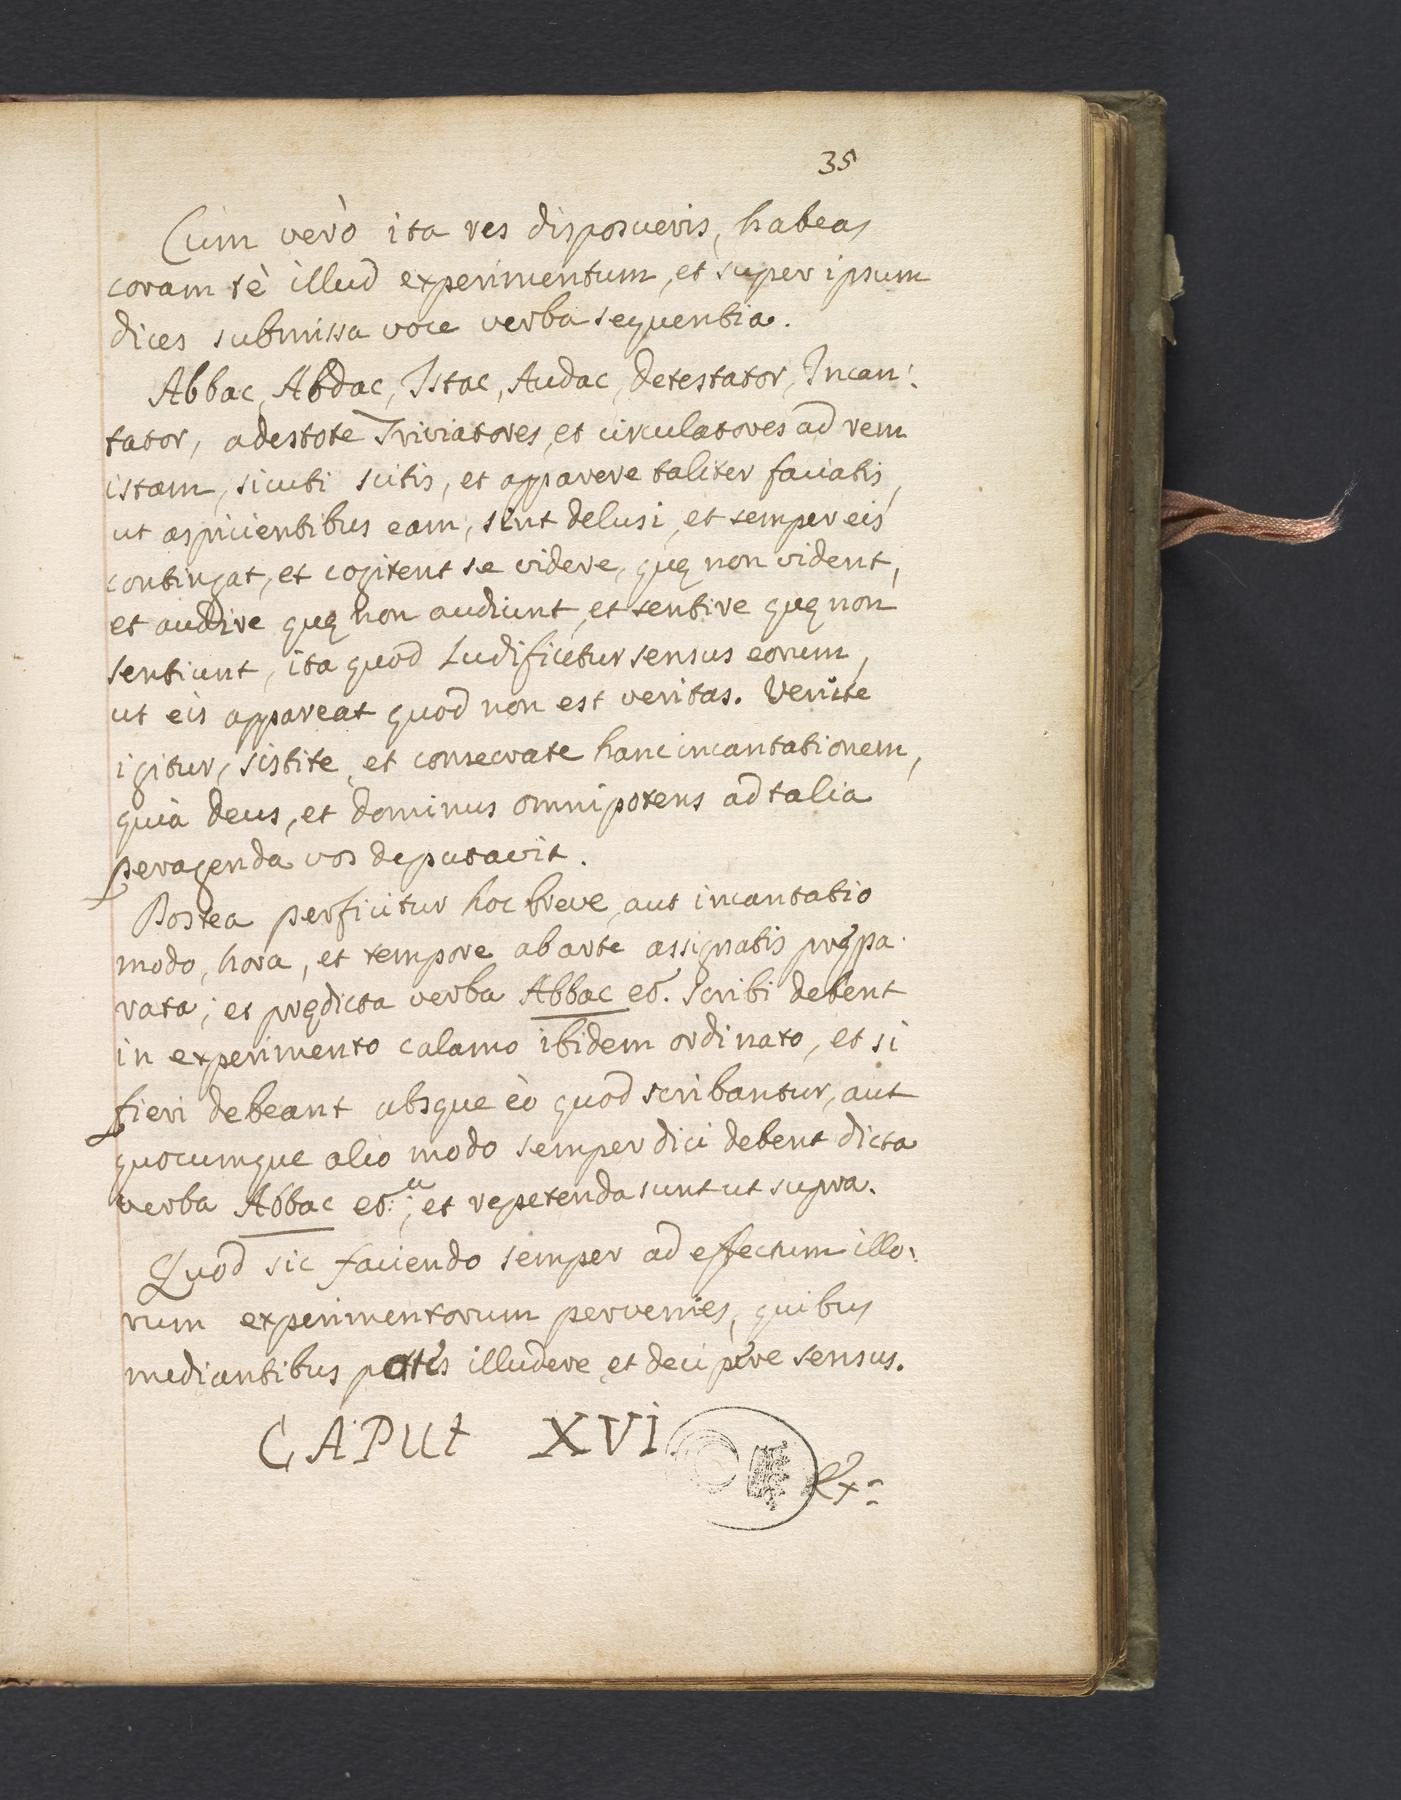 35
Cùm verò ita res disposueris, habeas
coram tè illud experimentum, et super ipsum
dices submissa voce verba sequentia.
Abbac, Abdac, Istac, Audac, detestator, Incan:
tator, adestote Triviatores, et circulatores ad rem
istam, sicuti scitis, et apparere taliter faciatis,
ut aspicientibus eam, sint delusi, et semper eis
contingat, et cogitent se videre, quę non vident,
et audire quę non audiunt, et sentire quę non
sentiunt, ita quod Ludificetur sensus eorum,
ut eis appareat quod non est veritas. Venite
igitur, sistite, et consecrate hanc incantationem,
quia deus, et dominus omnipotens ad talia
peragenda vos deputavit.
Postea perficitur hoc breve, aut incantatio
modo, hora, et tempore ab arte assignatis prępa:
rata; et prędicta verba Abbac et. scribi debent
in experimento calamo ibidem ordinato, et si
fieri debeant absque èo quod scribantur, aut
quocumque alio modo semper dici debent dicta
verba Abbac et; et repetenda sunt ut supra.
Quod sic faciendo semper ad effectum illo:
rum experimentorum pervenies, quibus
mediantibus potes illudere, et decipere sensus.
CAPUt XVI